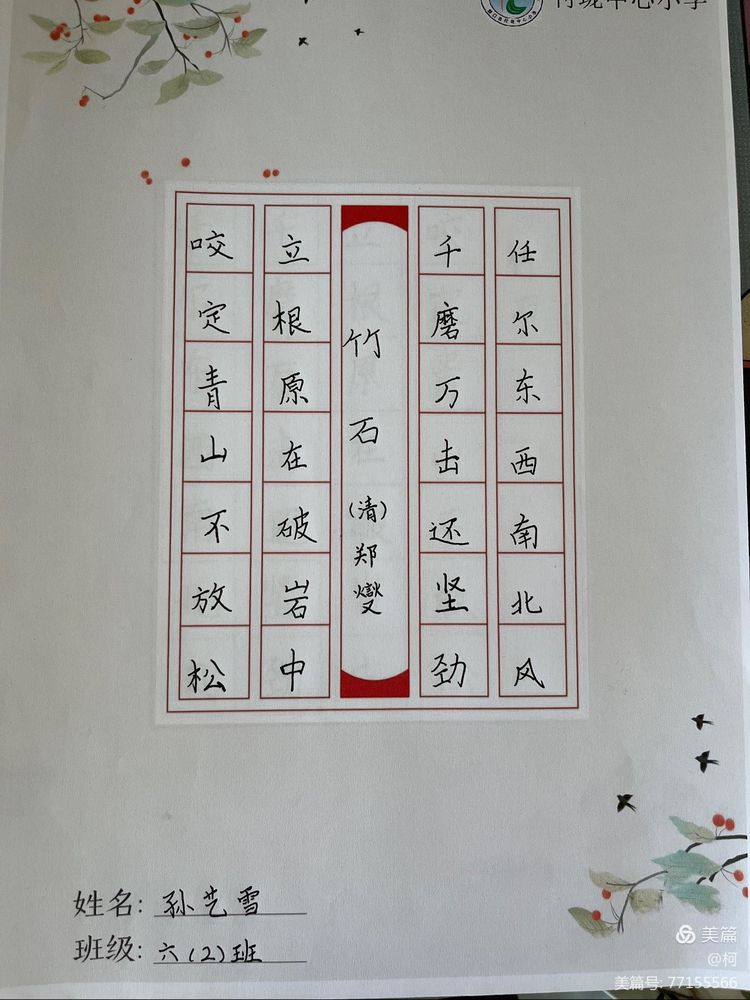 中心小学
咬定青山不放松
立根原在破岩中
竹石
（清）郑燮
千磨万击还坚劲
任尔东西南北风
姓名：孙艺雪
班级：六（2）班
美篇
@柯
美篇号：77155566